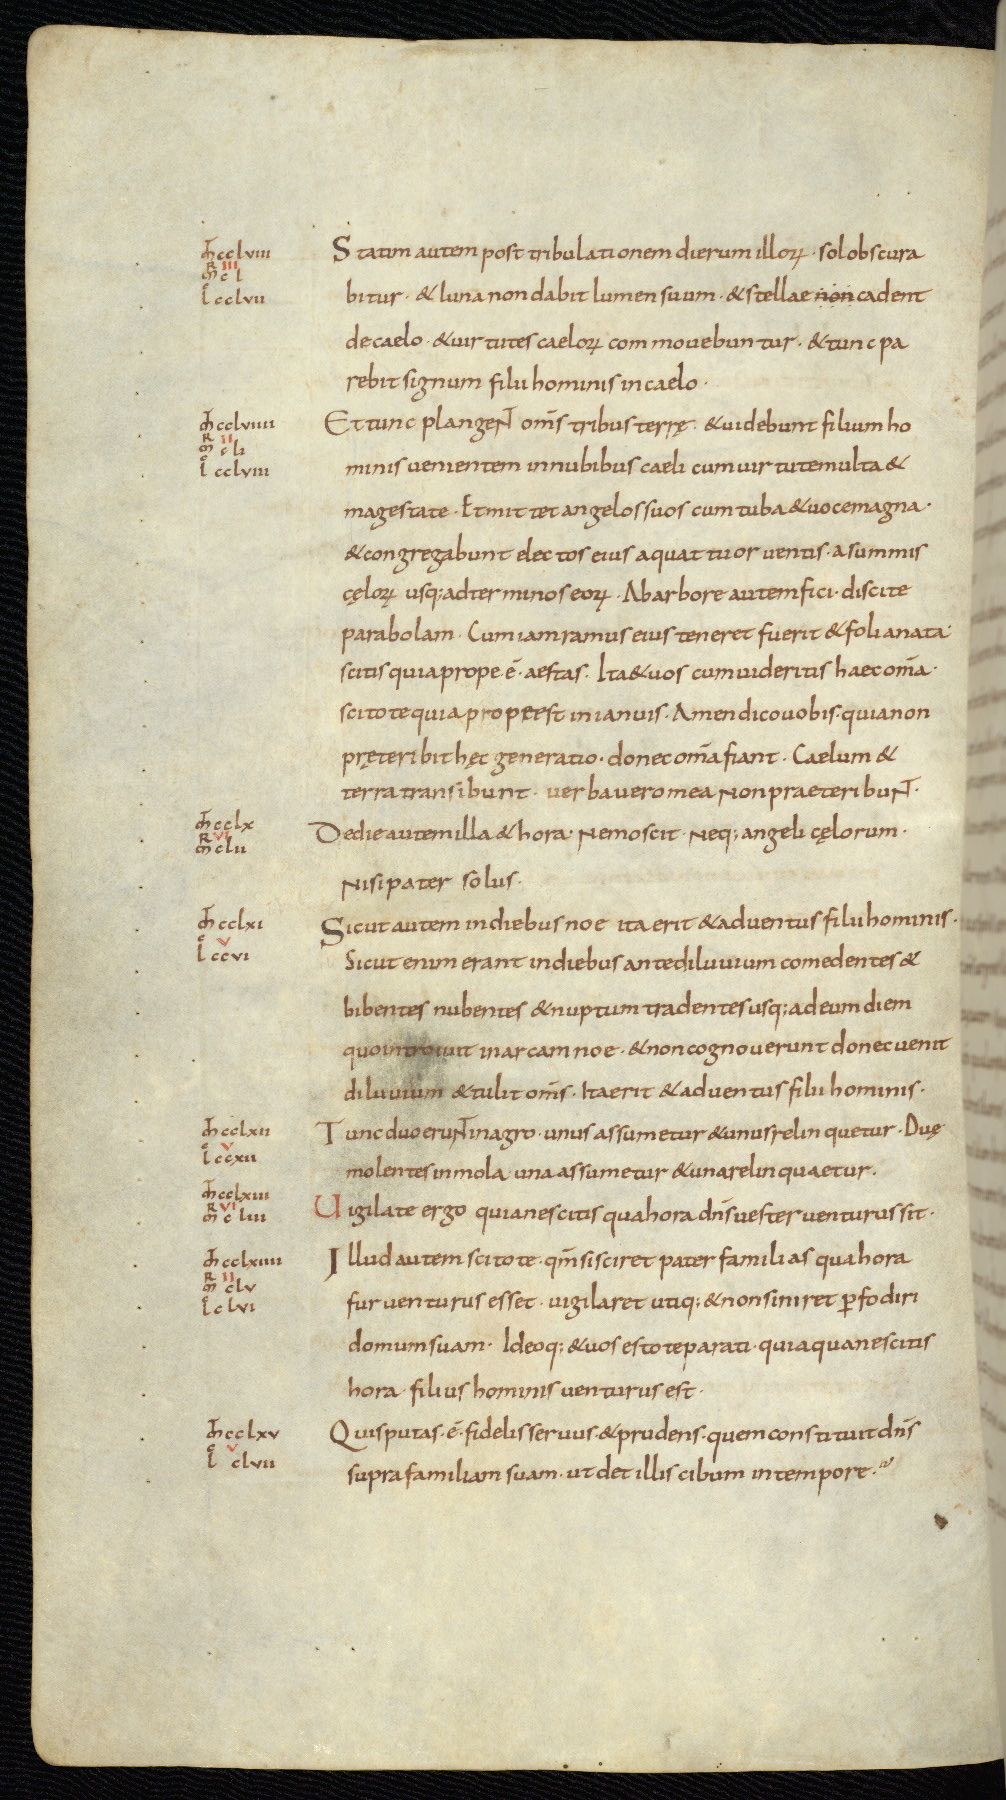 m̄ cclviii Statim autem post tribulationem dierum illoꝝ · sol obscura
mR̄ III c l
l cclvii bitur · & luna non dabit lumen suum · & stellae non cadent
de caelo · & uirtutes caeloꝝ commouebuntur · & tunc pa
rebit signum filii hominis in caelo ·
m̄ cclviiii Et tunc plangeNT om̄s tribus terrę · & uidebunt filium ho
mR̄ II c li
l cclviii minis uenientem in nubibus caeli cum uirtute multa &
magestate · Et mittet angelos suos cum tuba & uoce magna ·
& congregabunt electos eius a quattuor uentis · a summis
cęloꝝ usq; ad terminos eoꝝ · Ab arbore autem fici · discite
parabolam · Cum iam ramus eius teneret fuerit & folia nata ·
scitis quia prope · ē · aestas · Ita & uos cum uideritis haec om̄a ·
scitote quia prope est in ianuis · Amen dico uobis · quia non
pręteribit hęc generatio · donec om̄a fiant · Caelum &
terra transibunt · uerba uero mea Non praeteribuNT ·
m̄ cclx De die autem illa & hora · Nemo scit · Neq; angeli cęlorum ·
mR̄ VI clii
Nisi pater solus ·
m̄ cclxi Sicut autem in diebus noe ita erit & aduentus filii hominis ·
l V ccvi Sicut enim erant in diebus ante diluuium comedentes &
bibentes nubentes & nuptum tradentes usq; ad eum diem
quo introiuit in arcam noe · & non cognouerunt donec uenit
diluuium & tulit om̄s · Ita erit & aduentus filii hominis ·
m̄ cclxii Tunc duo eruNT in agro · unus assumetur & unus relinquetur · Duę
l V ccxii
molentes in mola una assumetur & una relinquaetur ·
m̄ cclxiii
mR̄ VI c liii Uigilate ergo quia nescitis qua hora dn̄s uester uenturus sit ·
m̄ cclxiiii Illud autem scitote · qm̄ si sciret pater familias qua hora
mR̄ II clv
l clvi fur uenturus esset · uigilaret utiq; & non siniret ꝑfodiri
domum suam · Ideoq; & uos estote parati · quia qua nescitis
hora · filius hominis uenturus est ·
m̄ cclxv Quis putas · ē · fidelis seruus · & prudens · quem constituit dn̄s
l V clvii supra familiam suam · ut det illis cibum in tempore ·